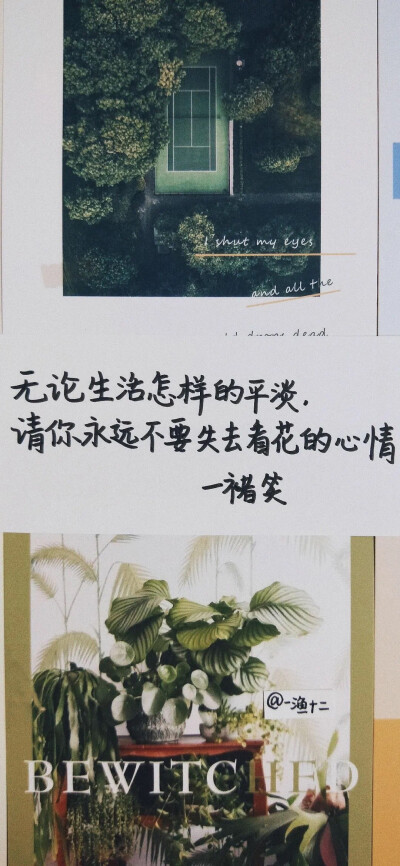 I shut my eyes
and all the
无论生活怎样的平淡.
请你永远不要失去看花的心情
一褚笑
@一渔十二
BEWITCHED